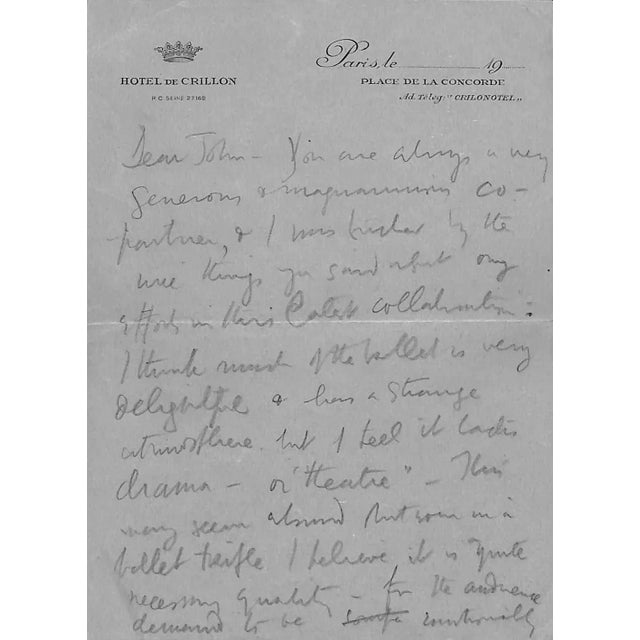 HOTEL DE CRILLON
R.C. SEINE 27169
Paris, le 19
PLACE DE LA CONCORDE
Ad. Télég: "CRILONOTEL"
Dear John – You are always a very
generous & magnanimous co-
partner, & I was touched by the
nice things you said about my
efforts in this latest collaboration:
I think much of the ballet is very
delightful & has a strange
atmosphere. but I feel it lacks
drama – or "theatre" – This
may seem absurd but even in a
ballet trifle I believe it is quite
necessary quality – for the audience
demand to be emotionally